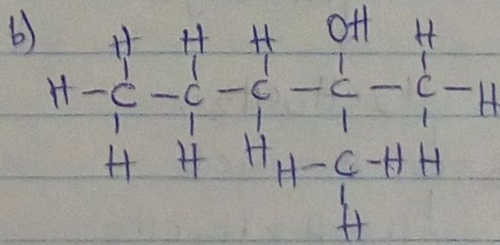 b) H H H OH H
H-C-C-C-C-C-H
H H H H-C-H H
H